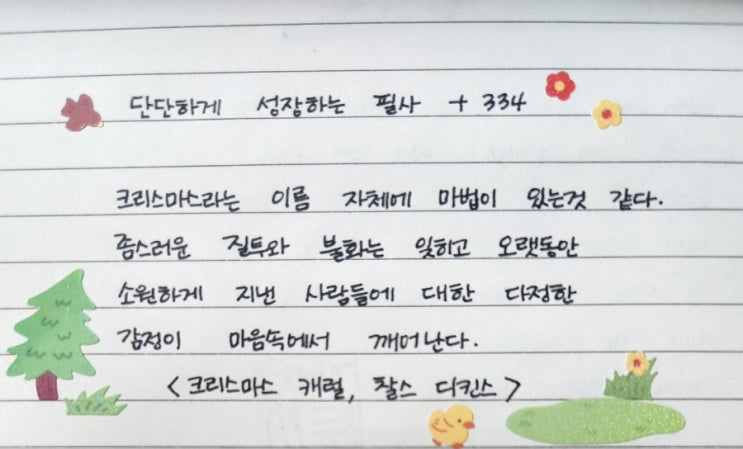 단단하게 성장하는 필사 + 334
크리스마스라는 이름 자체에 마법이 있는것 같다.
좀스러운 질투와 불화는 잊히고 오랫동안
소원하게 지낸 사람들에 대한 다정한
감정이 마음속에서 깨어난다.
<크리스마스 캐럴, 찰스 디킨스>